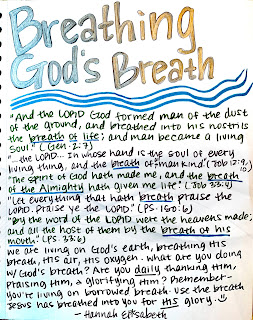 Breathing
God's Breath
"And the LORD God formed man of the dust
of the ground, and breathed into his nostrils
the breath of life; and man became a living
soul." (Gen. 2:7)
"...the LORD... In whose hand is the soul of every
living thing, and the breath of all mankind." (Job 12:9,
10)
"The spirit of God hath made me, and the breath
of the Almighty hath given me life." (Job 33:4)
"Let everything that hath breath praise the
LORD. Praise ye the LORD." (PS. 150:6)
"By the word of the LORD were the heavens made;
and all the host of them by the breath of his
mouth." (PS. 33:6)
We are living on God's earth, breathing His
breath, His air, His oxygen. What are you doing
w/ God's breath? Are you daily thanking Him,
praising Him, & glorifying Him? Remember-
you're living on borrowed breath. Use the breath
Jesus has breathed into you for HIS glory. ☺
- Hannah Elisabeth